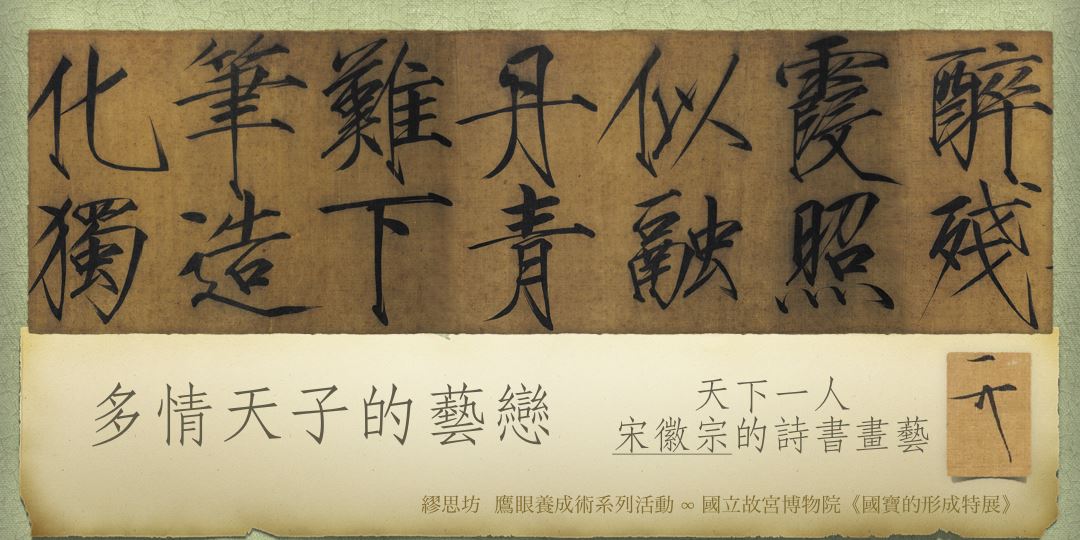 醉殘
霞照
似融
丹青
難下
筆造
化獨
多情天子的藝戀
天下一人
宋徽宗的詩書畫藝
繆思坊 鷹眼養成術系列活動 ∞ 國立故宮博物院《國寶的形成特展》